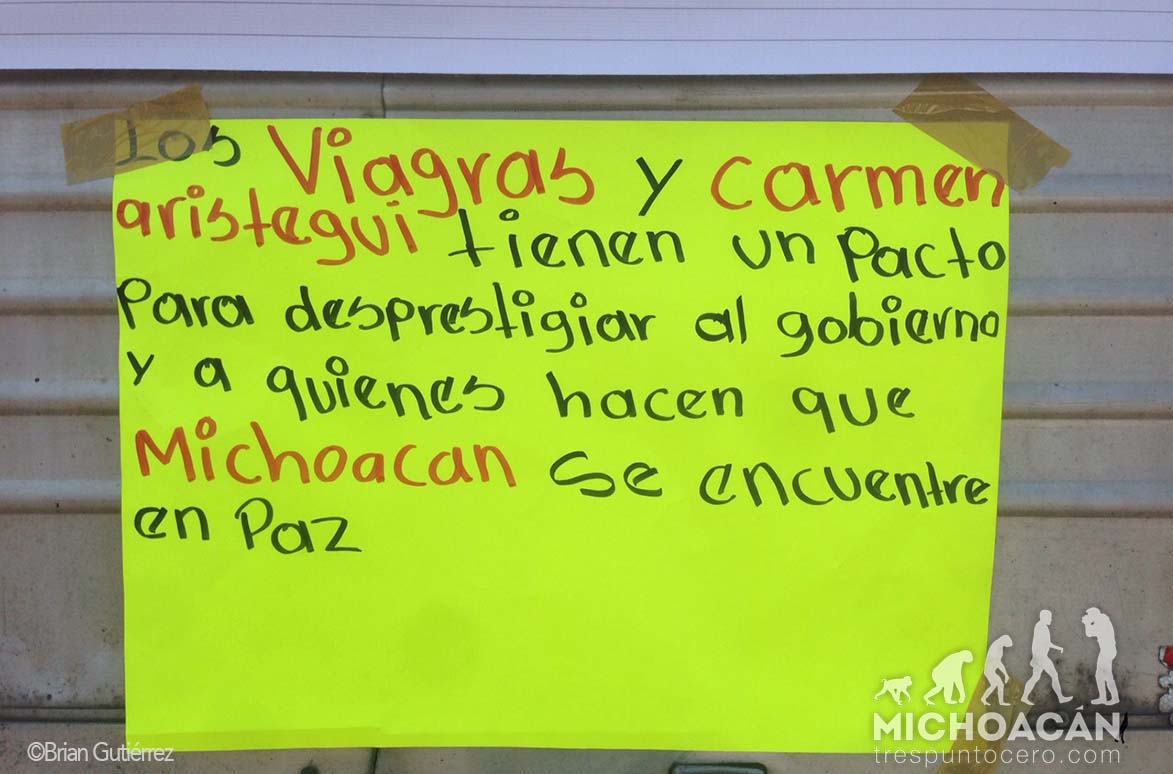 Los Viagras y carmen
aristegui tienen un Pacto
Para desprestigiar al gobierno
y a quienes hacen que
Michoacan se encuentre
en Paz
©Brian Gutiérrez
MICHOACÁN
trespuntocero.com